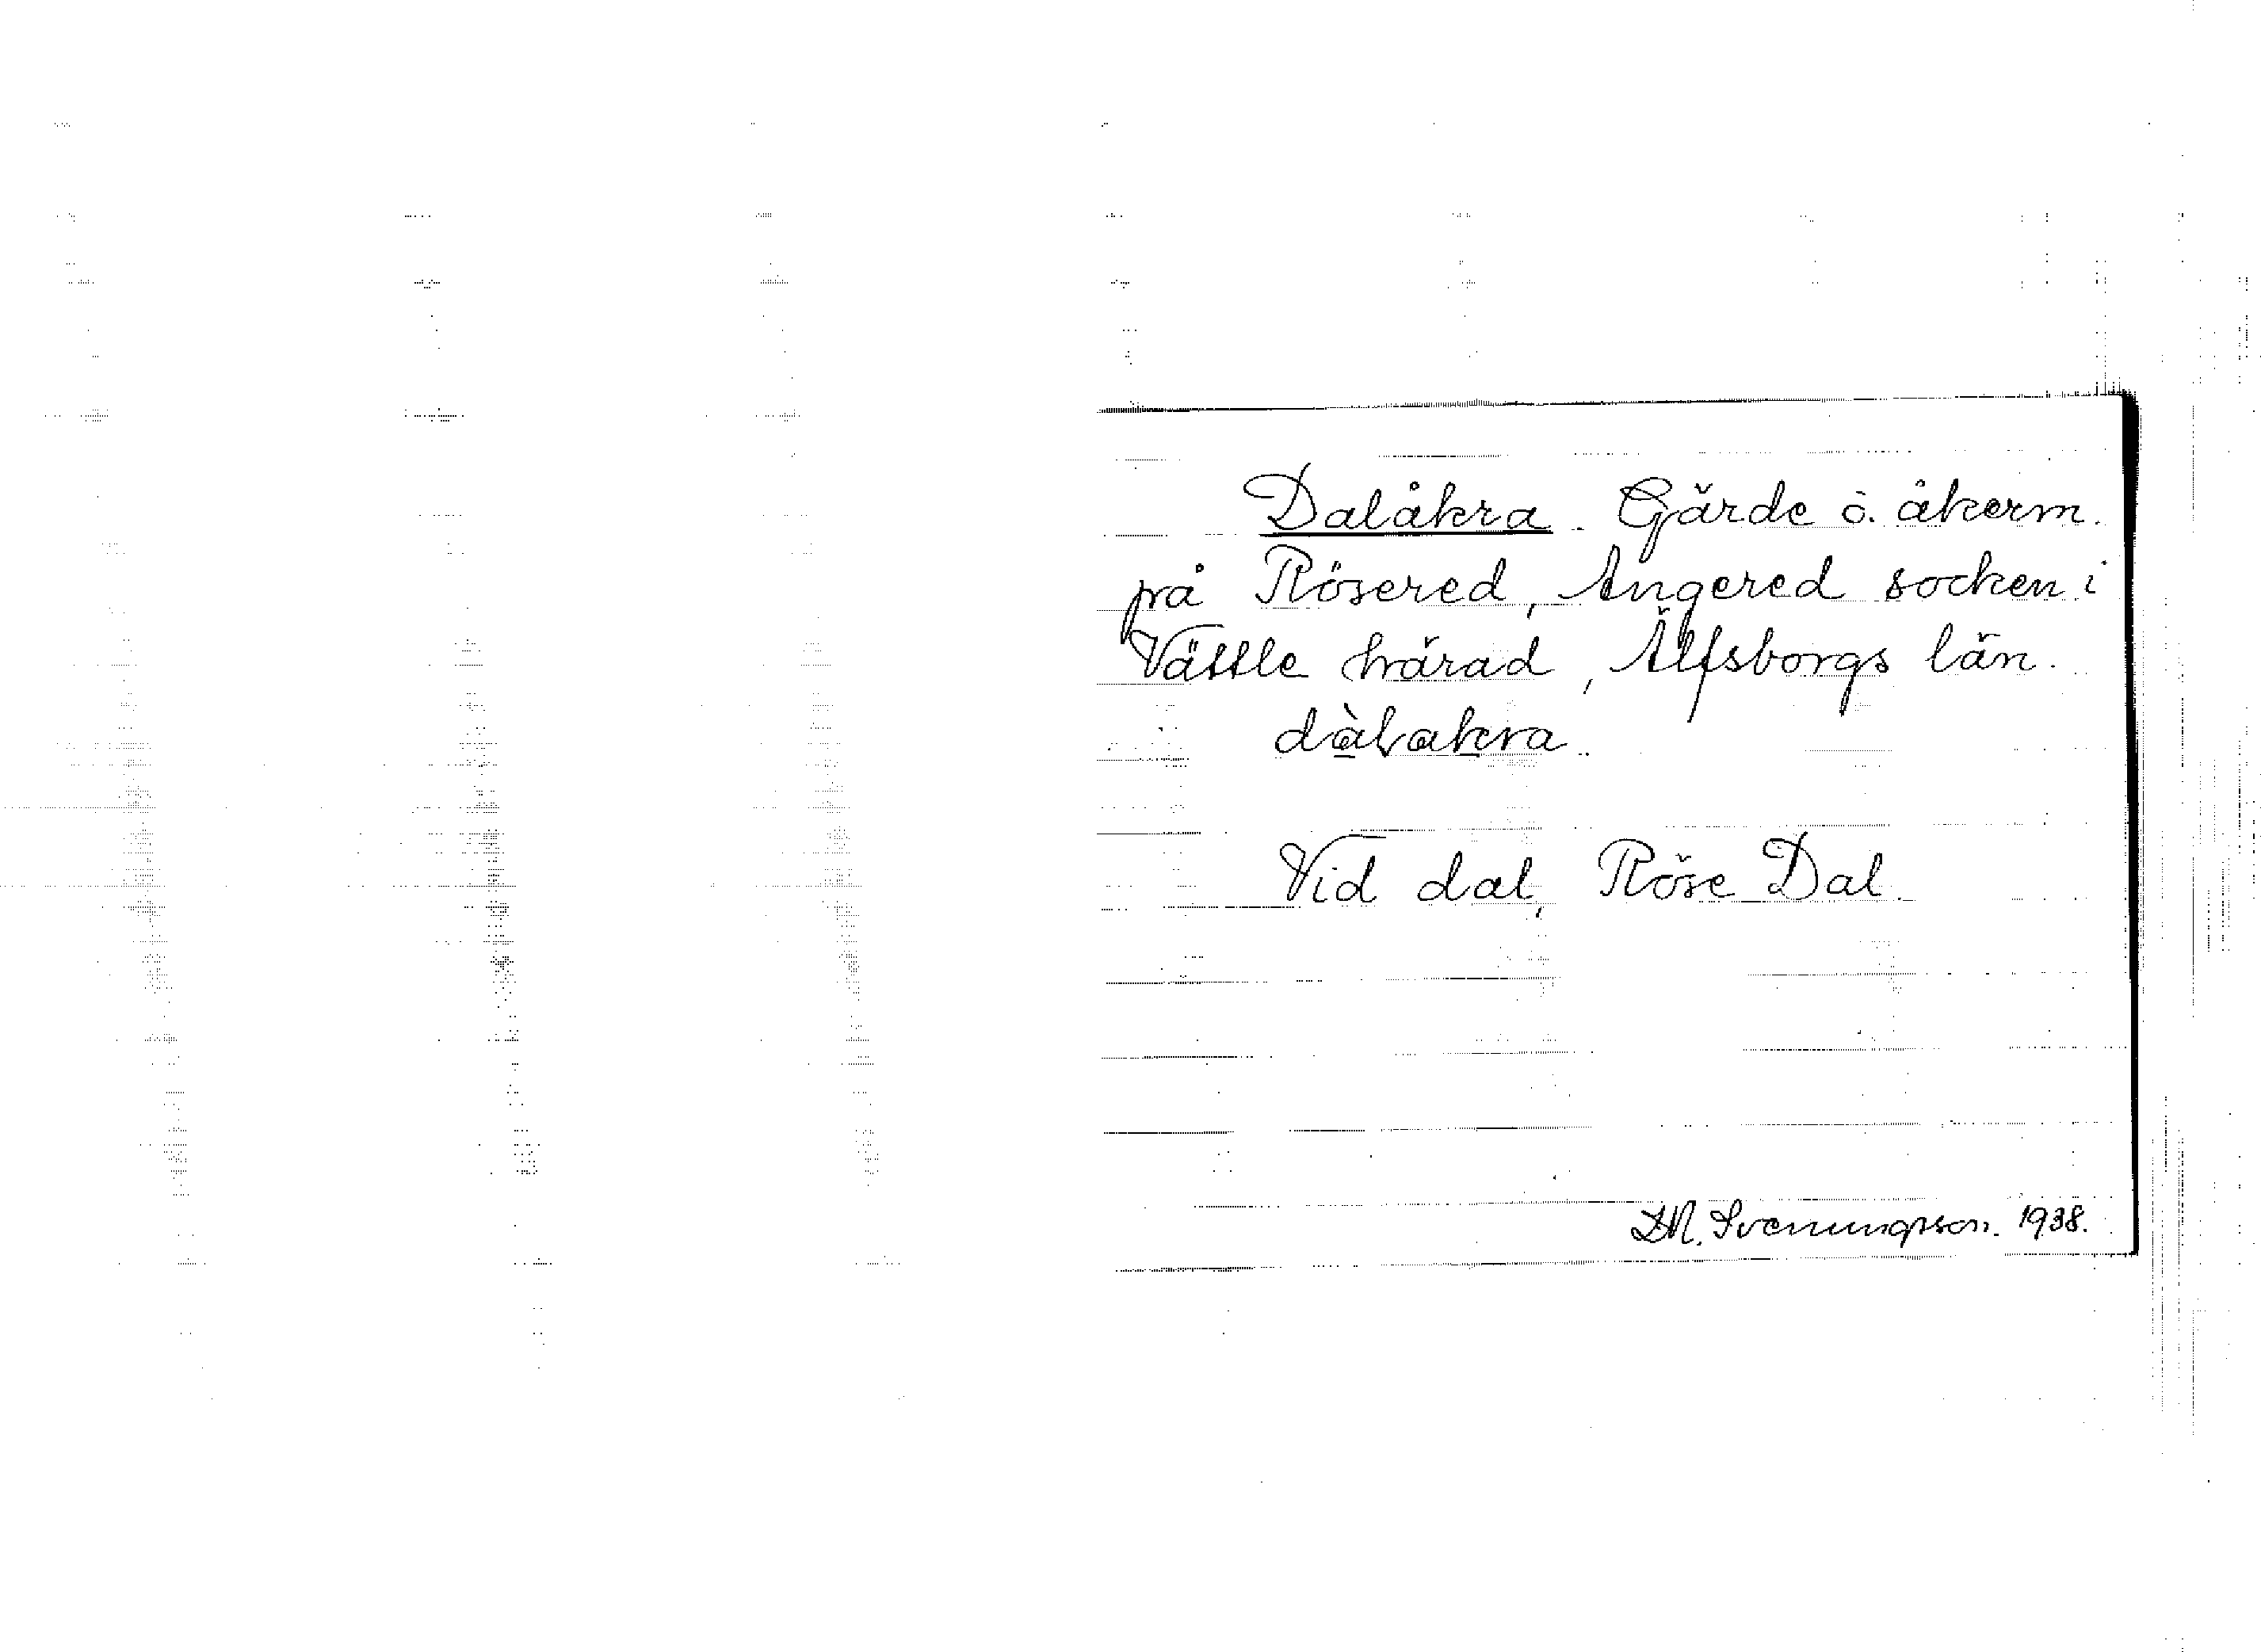 Dalåkra. Gärde o. åkerm.
på Rösered, Angered socken i
Vättle härad, Älfsborgs län.
dàlakra.
Vid dal, Röse Dal.
D.M. Svenungsson. 1938.